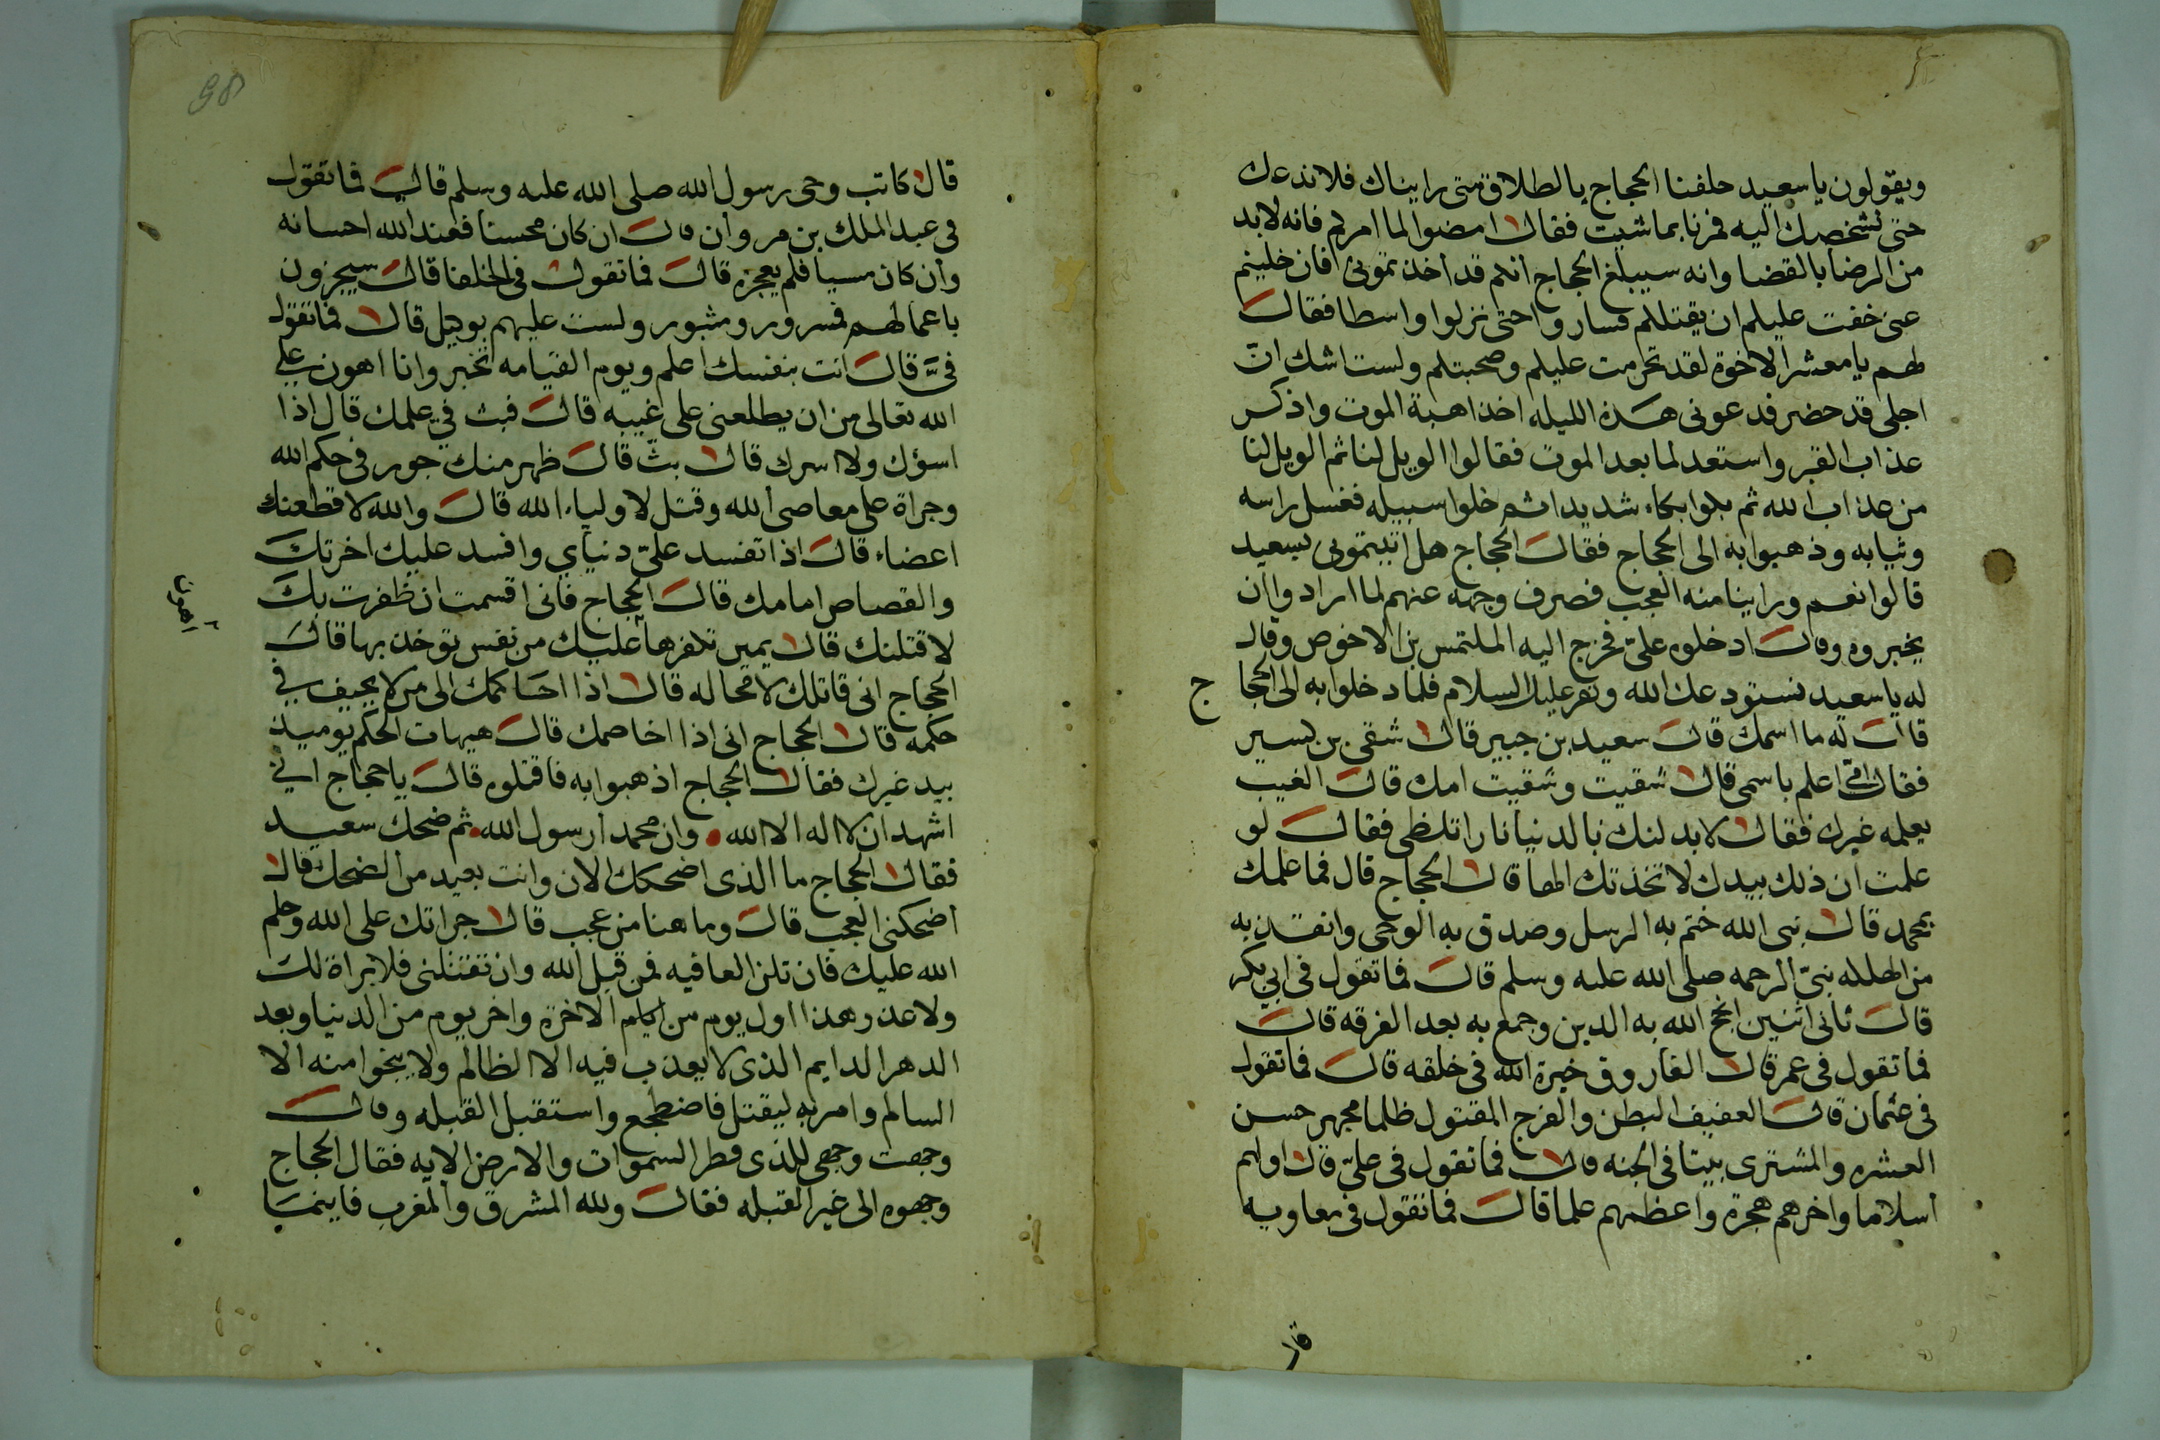 ويقولون يا سعيد حلفنا الحجاج بالطلاق متى رايناك فلا ندعك
حتى نشخصك اليه فمرنا بما شيت فقال امضوا لما امرتم فانه لا بد
من الرضا بالقضا وانه سيبلغ الحجاج انكم قد اخذتموني فان خليتم
عنى خفت عليكم ان يقتلكم فساروا حتى نزلوا واسطا فقال
لهم يا معشر الاخوة لقد تحرمت عليكم وصحبتكم ولست اشك ان
اجلى قد حضر فدعونى هذه الليله اخذ اهبة الموت واذكر
عذاب القبر واستعد لما بعد الموت فقالوا الويل لنا ثم الويل لنا
من عذاب الله ثم بكوا بكاء شديدا ثم خلوا سبيله فغسل راسه
وثيابه وذهبوا به الى الحجاج فقال الحجاج هل اتيتموني بسعيد
قالوا نعم وراينا منه العجب فصرف وجهه عنهم لما اراد وا ان
يخبروه وقال ادخلوه علىّ فخرج اليه الملتمس بن الاخوص وقال
له يا سعيد نستودعك الله ونقر عليك السلام فلما دخلوا به الى الحجا ج
قال له ما اسمك قال سعيد بن جبير قال شقى بن كسير
فقال امّى اعلم باسمى قال شقيت وشقيت امك قال الغيب
يعلمه غيرك فقال لابدلنك بالدنيا نارا تلظى فقال لو
علمت ان ذلك بيدك لاتخذتك الها قال الحجاج قال فما علمك
بمحمد قال نبى الله ختم به الرسل وصدق به الوحى وانقذ به
من الهلكه نبىّ الرحمه صلى الله عليه وسلم قال فما تقول فى ابى بكر
قال ثانى اثنين الله به الدين وجمع به بعد الفرقه قال
فما تقول فى عمر قال الفاروق خيرة الله فى خلقه قال فما تقول
فى عثمان قال العفيف البطن والفرج المقتول ظلما مجهر حسن
العشره والمشترى بيتا فى الجنه قال فما تقول فى علىّ قال اولهم
اسلاما واخرهم هجرة واعظمهم علما قال فما تقول فى معاويه
قال
قال كاتب وحى رسول الله صلى الله عليه وسلم قال فما تقول
فى عبد الملك بن مروان قال ان كان محسنا فعند الله احسانه
وان كان مسيا فلم يعجزه قال فما تقول فى الخلفا قال سيجزون
باعمالهم فمسرور ومثبور ولست عليهم بوكيل قال فما تقول
فىَّ قال انت بنفسك اعلم ويوم القيامه تخبر وانا اهون على
الله تعالى من ان يطلعنى على غيبه قال فبث في علمك قال اذا
اسؤك ولا اسرك قال بثّ قال ظهر منك جور فى حكم الله
وجراة على معاصى الله وقتل لاولياء الله قال والله لاقطعنك
اعضاء قال اذا تفسد علىّ دنياي وافسد عليك اخرتك
والقصاص امامك قال الحجاج فانى اقسمت ان ظفرت بك
لاقتلنك قال يمين تكفرها عليك من نفس توخذ بها قال
اهون
الحجاج انى قاتلك لا محاله قال اذا احاكمك الى من لا يحيف في
حكمه قال الحجاج انى اذا اخاصمك قال هيهات الحكم يوميذ
بيد غيرك فقال الحجاج اذهبوا به فاقتلوه قال يا حجاج اني
اشهد ان لا اله الا الله وان محمدا رسول الله ثم ضحك سعيد
فقال الحجاج ما الذى اضحكك الان وانت بعيد من الضحك قال
اضحكنى العجب قال وما هنا من عجب قال جراتك على الله وحلم
الله عليك فان تكن العافيه فمن قبل الله وان تقتلنى فلا براة لك
ولا عذر وهذا اول يوم من ايام الاخرة واخر يوم من الدنيا وبعد
الدهر الدايم الذى لا يعذب فيه الا الظالم ولا ينجوا منه الا
السالم وامر به ليقتل فاضطجع واستقبل القبله وقال
وجهت وجهى للذى فطر السموات والارض الايه فقال الحجاج
وجهوه الى غير القبله فقال ولله المشرق والمغرب فاينما